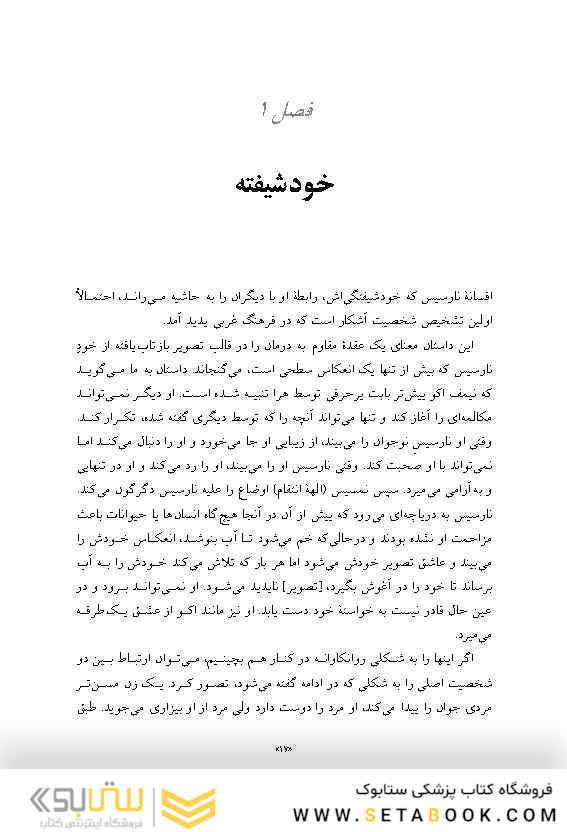 فصل ۱
خودشیفته
افسانهٔ نارسیس که خودشیفتگی‌اش، رابطهٔ او با دیگران را به حاشیه می‌راند، احتمالاً
اولین تشخیص شخصیت آشکار است که در فرهنگ غربی پدید آمد.
این داستان معنای یک عقدهٔ مقاوم به درمان را در قالب تصویر بازتاب‌یافته از خودِ
نارسیس که بیش از تنها یک انعکاس سطحی است، می‌گنجاند. داستان به ما می‌گوید
که نیمف اکو پیش‌تر بابت پرحرفی توسط هرا تنبیه شده است. او دیگر نمی‌تواند
مکالمه‌ای را آغاز کند و تنها می‌تواند آنچه را که توسط دیگری گفته شده، تکرار کند.
وقتی او نارسیسِ نوجوان را می‌بیند، از زیبایی او جا می‌خورد و او را دنبال می‌کند اما
نمی‌تواند با او صحبت کند. وقتی نارسیس او را می‌بیند، او را رد می‌کند و او در تنهایی
و به‌آرامی می‌میرد. سپس نمسیس (الههٔ انتقام) اوضاع را علیه نارسیس دگرگون می‌کند.
نارسیس به دریاچه‌ای می‌رود که پیش از آن در آنجا هیچ‌گاه انسان‌ها یا حیوانات باعث
مزاحمت او نشده بودند و درحالی‌که خم می‌شود تا آب بنوشد، انعکاس خودش را
می‌بیند و عاشق تصویر خودش می‌شود اما هر بار که تلاش می‌کند خودش را به آب
برساند تا خود را در آغوش بگیرد، [تصویر] ناپدید می‌شود. او نمی‌تواند برود و در
عین حال قادر نیست به خواستهٔ خود دست یابد. او نیز مانند اکو از عشق یک‌طرفه
می‌میرد.
اگر اینها را به شکلی روانکاوانه در کنار هم بچینیم، می‌توان ارتباط بین دو
شخصیت اصلی را به شکلی که در ادامه گفته می‌شود، تصور کرد. یک زن مسن‌تر
مردی جوان را پیدا می‌کند، او مرد را دوست دارد ولی مرد از او بیزاری می‌جوید. طبق
«۱۷»
فروشگاه کتاب پزشکی ستابوک
WWW.SETABOOK.COM
ستابوک
فروشگاه اینترنتی کتاب